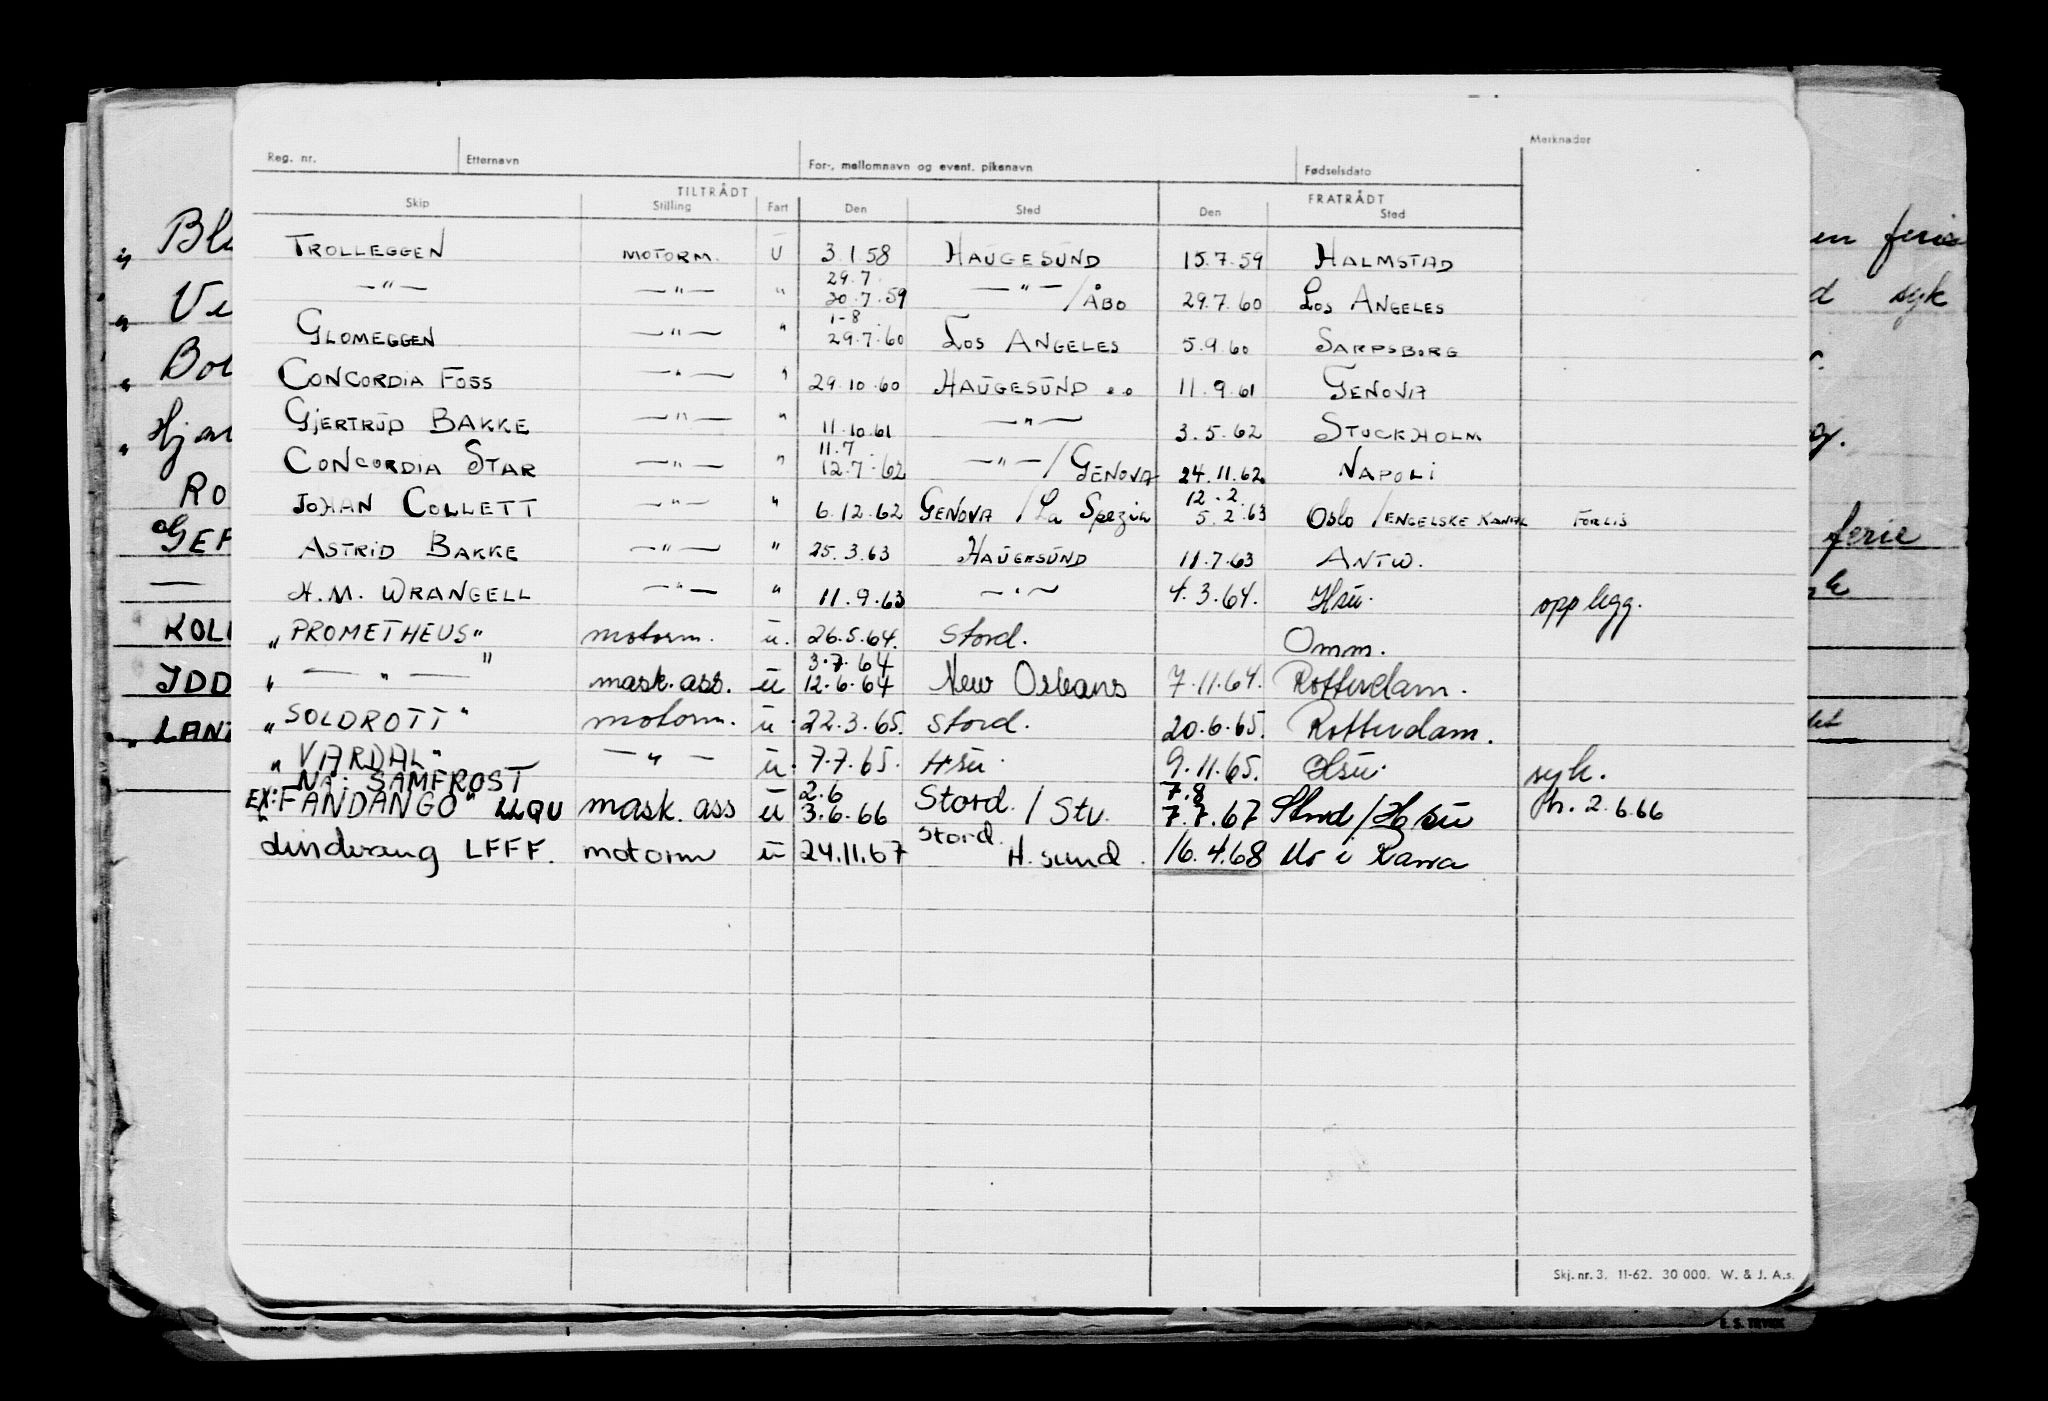 Merknader
Reg. nr. Etternavn For-, mellomnavn og event. pikenavn Fødselsdato
TILTRÅDT FRATRÅDT
Skip Stilling Fart Den Sted Den Sted
TROLLEGGEN MOTORM. U 3.1.58 HAUGESUND 15.7.59 HALMSTAD
29.7.
—"— —"— " 30.7.59 —"—/ÅBO 29.7.60 LOS ANGELES
1-8
GLOMEGGEN —"— " 29.7.60 LOS ANGELES 5.9.60 SARPSBORG
CONCORDIA FOSS —"— " 29.10.60 HAUGESUND 11.9.61 GENOVA
GJERTRUD BAKKE —"— " 11.10.61 —"— 3.5.62 STOCKHOLM
11.7.
CONCORDIA STAR —"— " 12.7.62 —"—/GENOVA 24.11.62 NAPOLI
12.2.
JOHAN COLLETT —"— " 6.12.62 GENOVA /La Spezia 5.2.63 Oslo /ENGELSKE KANAL FORLIS
ASTRID BAKKE —"— " 25.3.63 HAUGESUND 11.7.63 ANTW.
H.M. WRANGELL —"— " 11.9.63 —"— 4.3.64. Hsu. opplegg.
"PROMETHEUS" motorm. u. 26.5.64. Stord. Omm.
3.7.64
" —"— " mask.ass. u 12.6.64 New Orleans 7.11.64. Rotterdam.
"SOLDROTT" motorm. u. 22.3.65. Stord. 20.6.65. Rotterdam.
"VARDAL" —"— u. 7.7.65. Hsu. 9.11.65. Hsu. syk.
NÅ: SAMFROST 2.6 7.8
EX: FANDANGO" LLQU mask. ass u 3.6.66 Stord. / Stv. 7.7.67 Stord/Hsu 2.6.66
Lindvang LFFF. motorm u 24.11.67 Stord. H.sund. 16.4.68 Mo i Rana
Skj. nr. 3. 11-62. 30 000. W. & J. A.s.
Bl
Ve
Ro
GEF
KOL
IDD
LAN
en ferie
syk
ferie
E. S. TRYKK